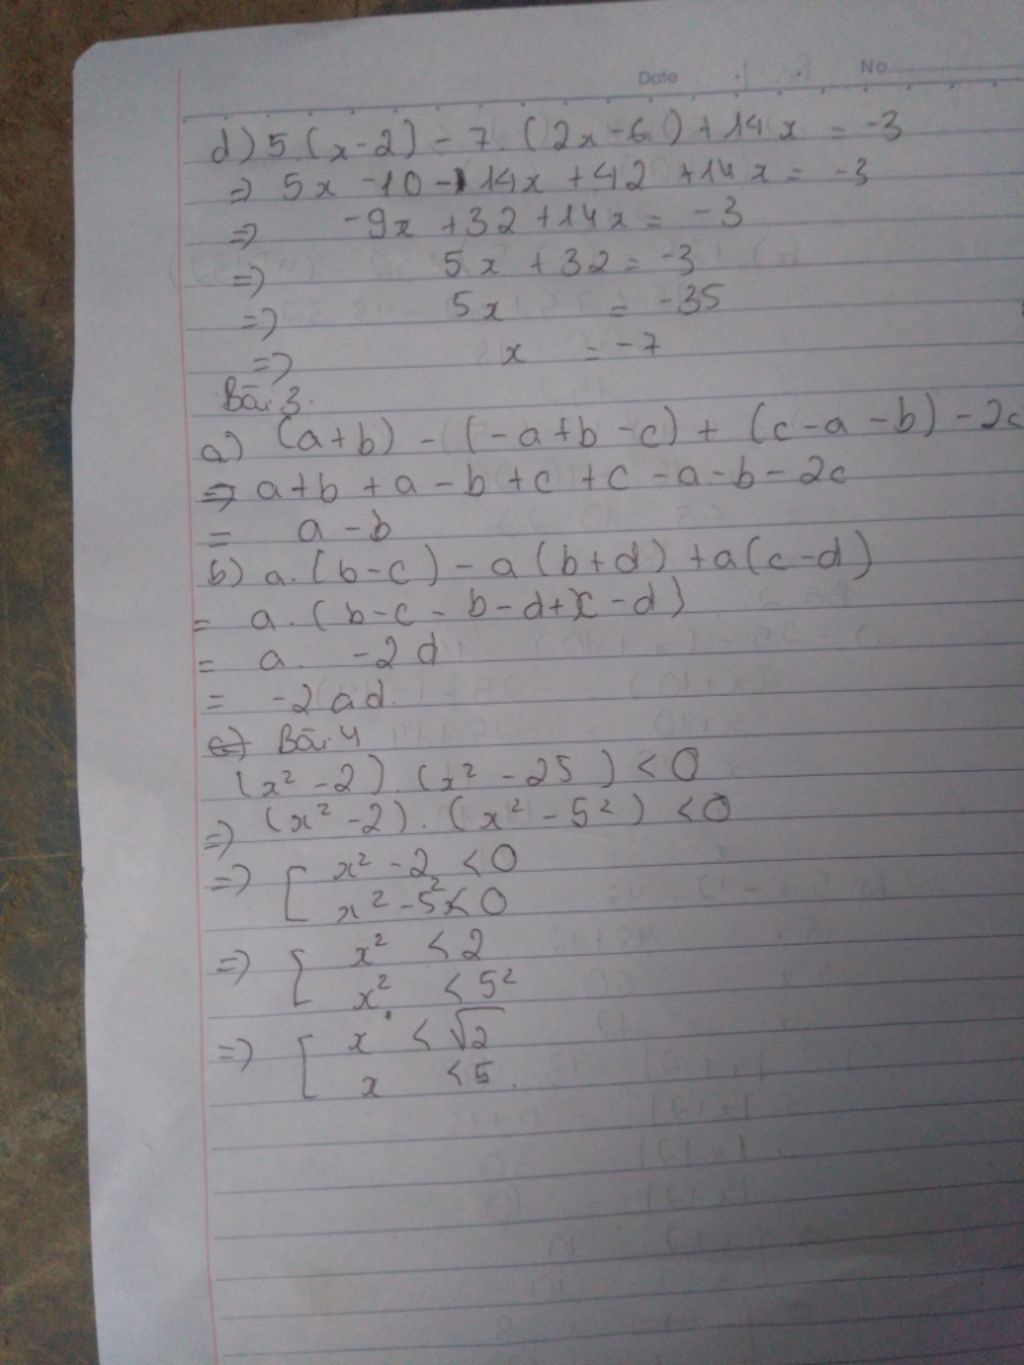 Date No
d) 5.(x-2) - 7.(2x-6) + 14x = -3
=> 5x - 10 - 14x + 42 + 14x = -3
=> -9x + 32 + 14x = -3
=> 5x + 32 = -3
=> 5x = -35
=> x = -7
Bài 3.
a) (a+b) - (-a+b-c) + (c-a-b) - 2c
= a+b+a-b+c+c-a-b-2c
= a-b
b) a.(b-c) - a(b+d) + a(c-d)
= a.(b-c-b-d+c-d)
= a. -2d
= -2ad.
c) Bài 4
(x² - 2).(x² - 25) < 0
=> (x² - 2).(x² - 5²) < 0
=> [ x² - 2 < 0
x² - 5² < 0
=> [ x² < 2
x² < 5²
=> [ x < √2
x < 5.